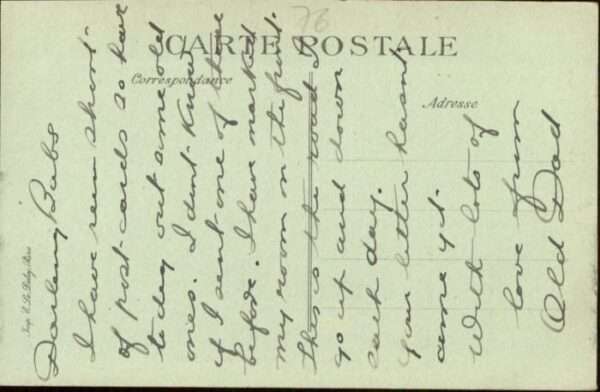 76
CARTE POSTALE
Correspondance
Adresse
Darling Bubs
I have run short
of post-cards so have
to dig out some old
ones. I dint know
if I sent one of these
before. I have marked
my room on the front.
this is the road I
go up and down
each day.
Your letter hasnt
came yet.
With lots of
love from
Old Dad